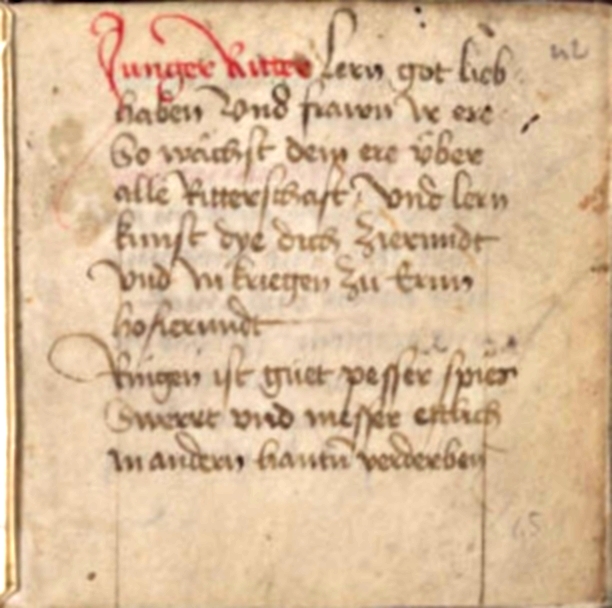 Junger Ritter lern got lieb
haben Vnd frawn Ir ere
So wächst dein ere vber
alle Ritterschaft Vnd lern
kunst dye dich Zierundt
Vnd In kriegen zu Ernn
hofierundt
Ringen ist guet pesser spies
Swerrt vnd messer ettlich
In andern hantn̄ verderben